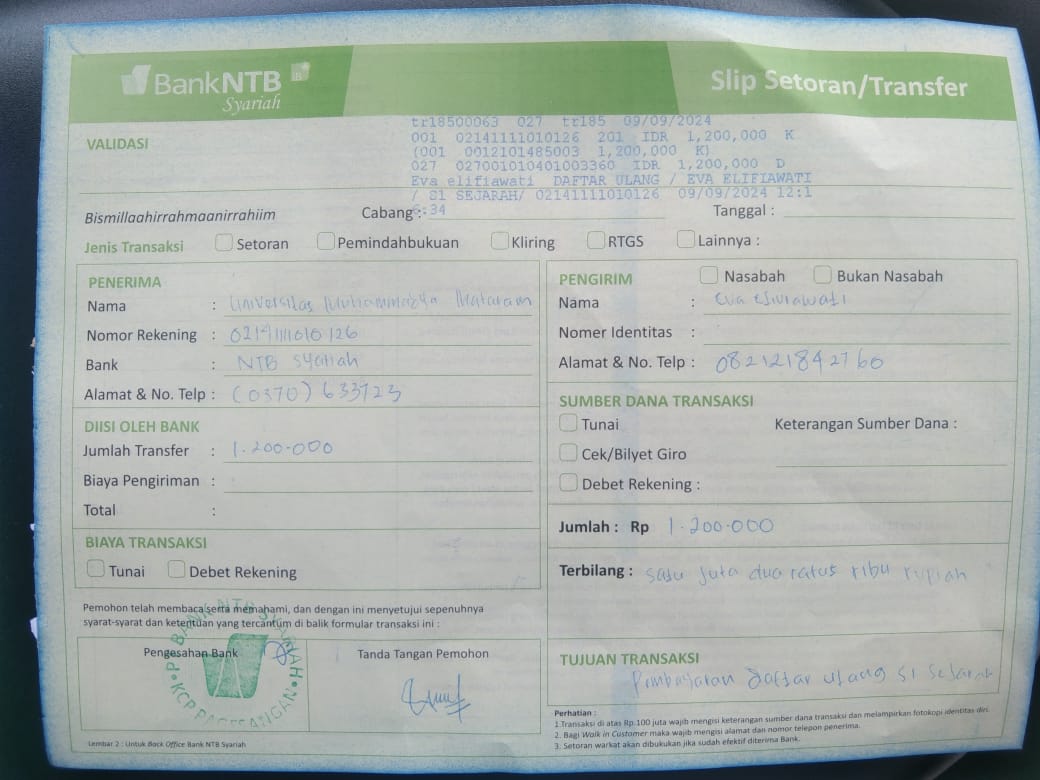 BankNTB
Syariah
Slip Setoran/Transfer
VALIDASI
tr18500063 027 tr185 09/09/2024
001 02141111010126 201 IDR 1,200,000 K
(001 0012101485003 1,200,000 K)
027 027001010401003360 IDR 1,200,000 D
Eva elifiawati DAFTAR ULANG / EVA ELIFIAWATI
/ S1 SEJARAH/ 02141111010126 09/09/2024 12:1
6:34
Bismillaahirrahmaanirrahiim
Cabang :
Tanggal :
Jenis Transaksi Setoran Pemindahbukuan Kliring RTGS Lainnya :
PENERIMA
Nama : Universitas Muhammadiyah Mataram
Nomor Rekening : 02141111010126
Bank : NTB Syariah
Alamat & No. Telp : (0370) 633723
DIISI OLEH BANK
Jumlah Transfer : 1.200.000
Biaya Pengiriman :
Total :
BIAYA TRANSAKSI
Tunai Debet Rekening
Pemohon telah membaca serta memahami, dan dengan ini menyetujui sepenuhnya
syarat-syarat dan ketentuan yang tercantum di balik formular transaksi ini :
Pengesahan Bank
Tanda Tangan Pemohon
PT BANK NTB SYARIAH
KCP PAGESANGAN
Lembar 2 : Untuk Back Office Bank NTB Syariah
PENGIRIM Nasabah Bukan Nasabah
Nama : Eva
Nomer Identitas :
Alamat & No. Telp : 082121842760
SUMBER DANA TRANSAKSI
Tunai Keterangan Sumber Dana :
Cek/Bilyet Giro
Debet Rekening :
Jumlah : Rp 1.200.000
Terbilang : satu juta dua ratus ribu rupiah
TUJUAN TRANSAKSI
Pembayaran daftar ulang S1 Sejarah
Perhatian :
1.Transaksi di atas Rp.100 juta wajib mengisi keterangan sumber dana transaksi dan melampirkan fotokopi identitas diri.
2. Bagi Walk in Customer maka wajib mengisi alamat dan nomor telepon penerima.
3. Setoran warkat akan dibukukan jika sudah efektif diterima Bank.